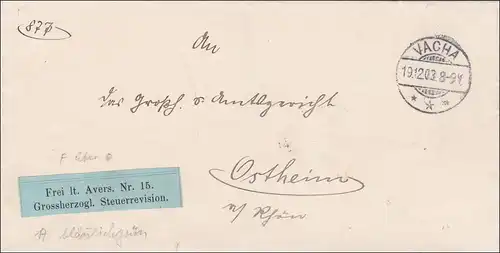 87J
An
VACHA
19.12.03. 8-9V.
das Großh. S. Amtsgericht
F über ⊕
Ostheim
v/ Rhön
Frei lt. Avers. Nr. 15.
Grossherzogl. Steuerrevision.
A bläulichgrün